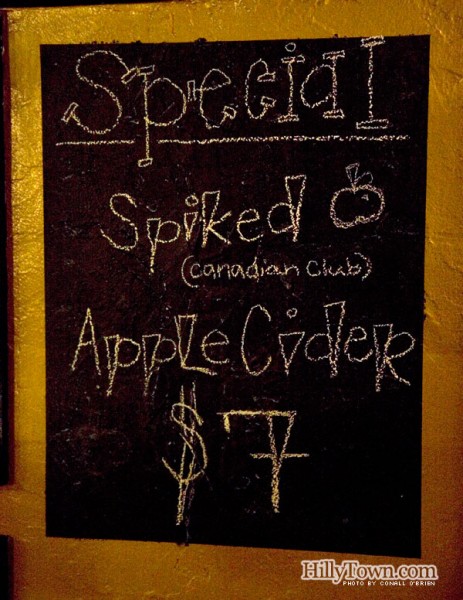 Special
Spiked
(Canadian Club)
Apple Cider
$7
HillyTown.com
PHOTO BY CONALL O'BRIEN